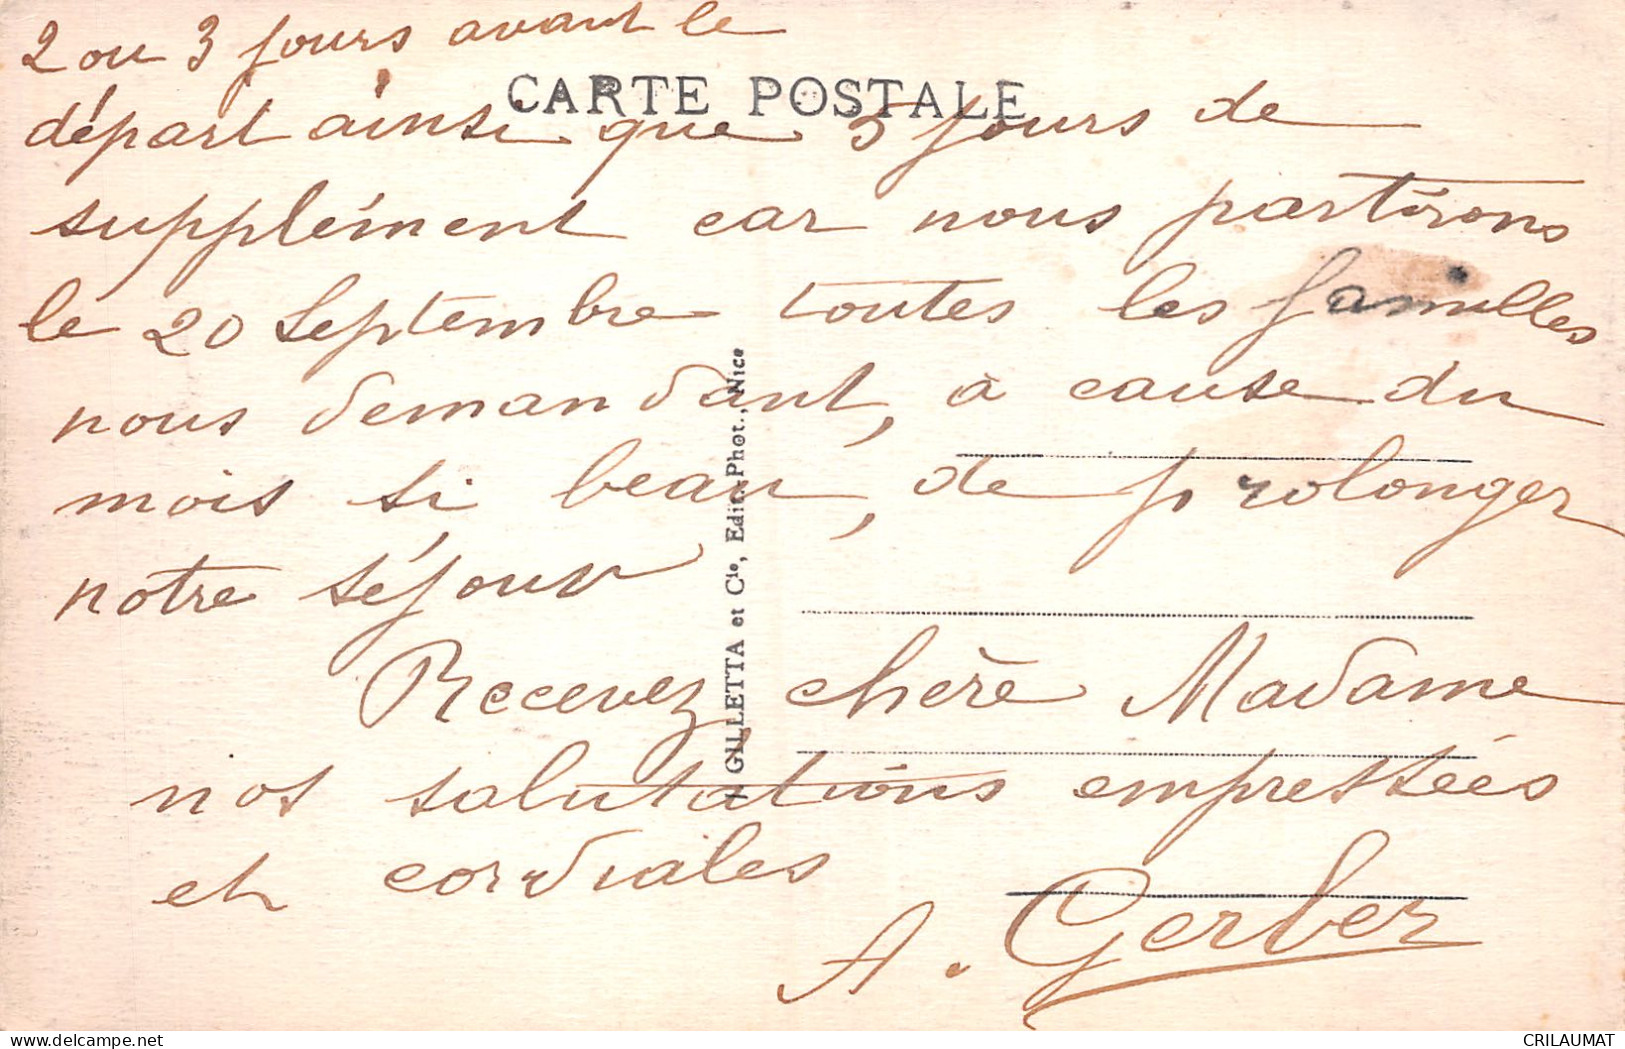 2 ou 3 jours avant le
CARTE POSTALE
départ ainsi que 5 jours de
supplément car nous partirons
le 20 Septembre toutes les familles
nous demandant, à cause du
mois si beau, de prolonger
notre séjour
Recevez, chère Madame
nos salutations empressées
et cordiales
A. Gerber
GILLETTA et Cie, Edit.-Phot., Nice
delcampe.com
CRILAUMAT